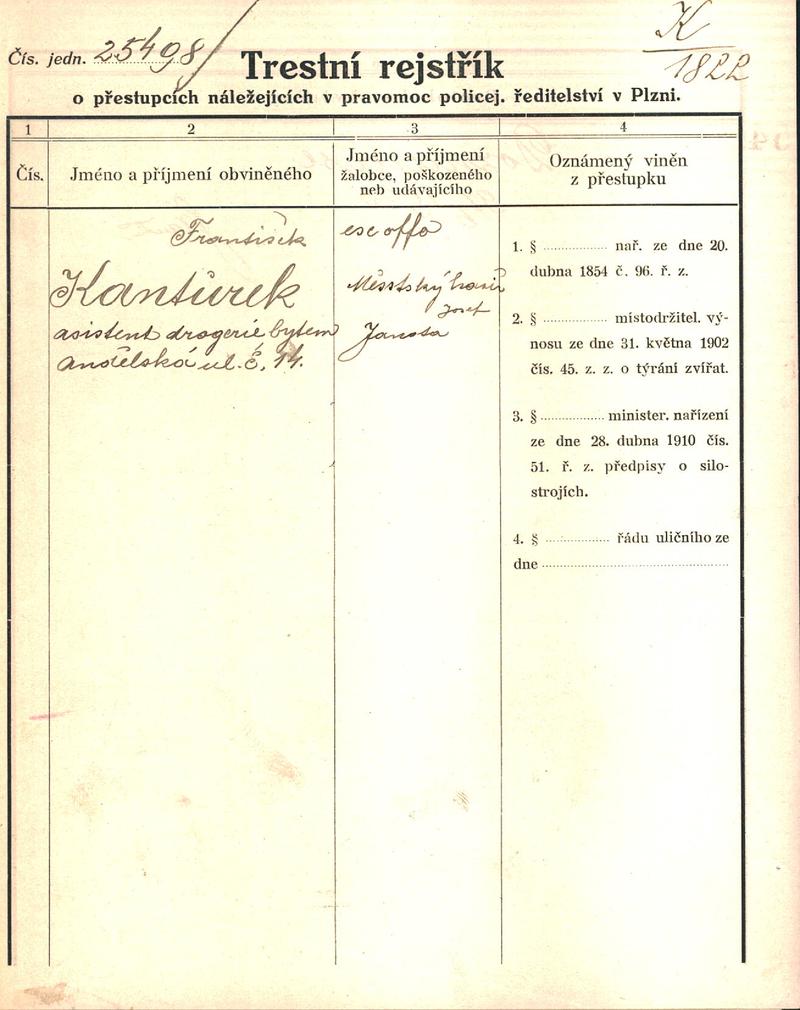 Čís. jedn. 25498/
K
1822
Trestní rejstřík
o přestupcích náležejících v pravomoc policej. ředitelství v Plzni.
1
2
3
4
Čís.
Jméno a příjmení obviněného
Jméno a příjmení
žalobce, poškozeného
neb udávajícího
Oznámený viněn
z přestupku
František
Kantůrek
asistent drogerie bytem
Andělská ul. č. 14.
esc offo
Městský hasič
Josef
Janota
1. § nař. ze dne 20.
dubna 1854 č. 96. ř. z.
2. § místodržitel. vý-
nosu ze dne 31. května 1902
čís. 45. z. z. o týrání zvířat.
3. § minister. nařízení
ze dne 28. dubna 1910 čís.
51. ř. z. předpisy o silo-
strojích.
4. § řádu uličního ze
dne